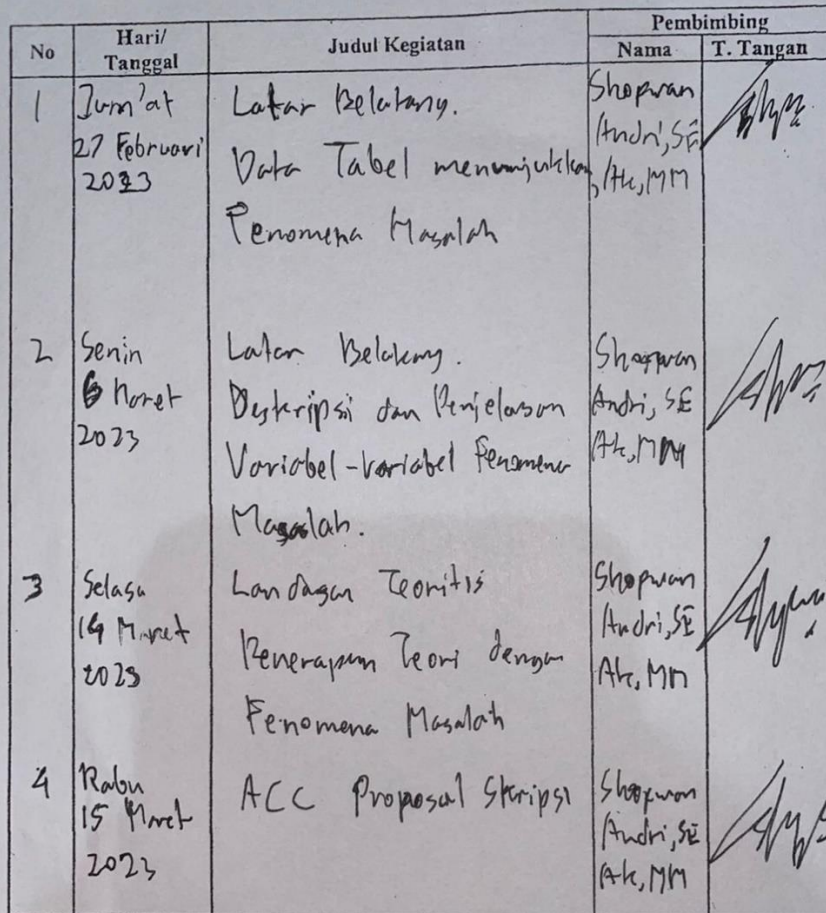 No
Hari/
Tanggal
Judul Kegiatan
Pembimbing
Nama
T. Tangan
1
Jum'at
27 Februari
2023
Latar Belakang.
Data Tabel menunjukkan
Fenomena Masalah
Shopwan
Andri, SE
, Ak, MM
2
Senin
6 Maret
2023
Latar Belakang.
Deskripsi dan Penjelasan
Variabel-variabel Fenomena
Masalah.
Shopwan
Andri, SE
Ak, MM
3
Selasa
14 Maret
2023
Landasan Teoritis
Penerapan Teori dengan
Fenomena Masalah
Shopwan
Andri, SE
Ak, MM
4
Rabu
15 Maret
2023
ACC Proposal Skripsi
Shopwan
Andri, SE
Ak, MM